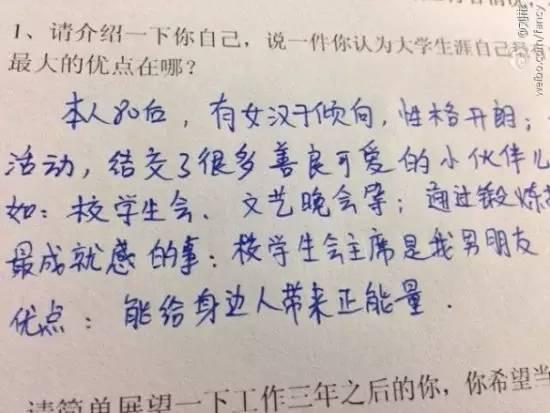 1、请介绍一下你自己，说一件你认为大学生涯自己最有
最大的优点在哪？
本人80后，有女汉子倾向，性格开朗；
活动，结交了很多善良可爱的小伙伴儿
如：校学生会、文艺晚会等；通过锻炼
最成就感的事：校学生会主席是我男朋友
优点：能给身边人带来正能量.
请简单展望一下工作三年之后的你，你希望当